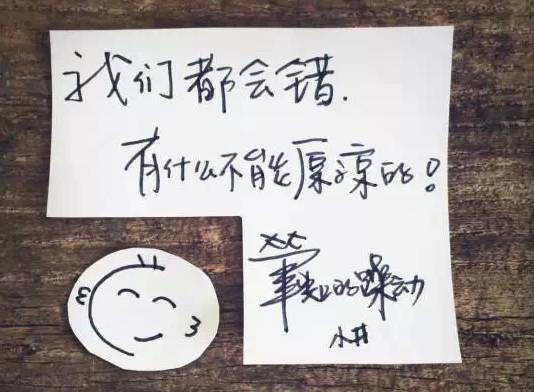 我们都会错.
有什么不能原谅的!
笔尖上的躁动
小井